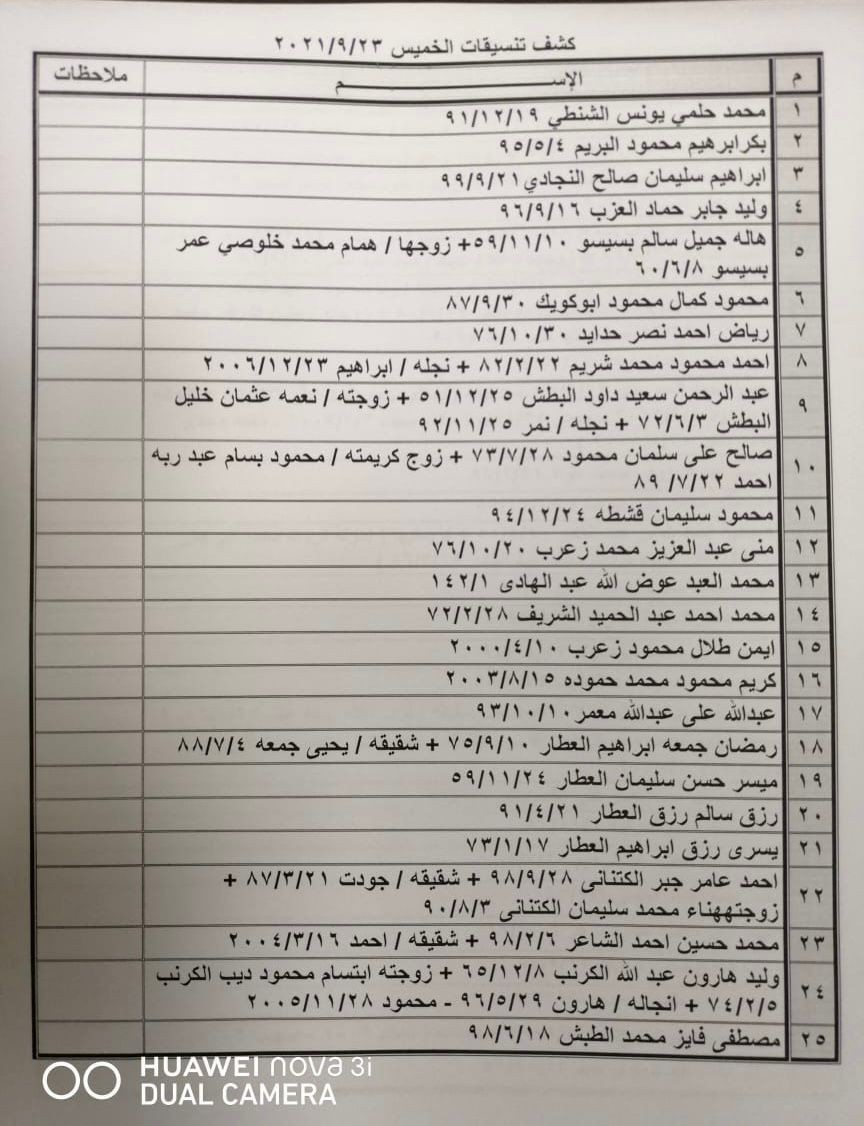 كشف تنسيقات الخميس ٢٠٢١/٩/٢٣
م الإســـــــــم ملاحظات
١ محمد حلمي يونس الشنطي ٩١/١٢/١٩
٢ بكرابرهيم محمود البريم ٩٥/٥/٤
٣ ابراهيم سليمان صالح النجادي ٩٩/٩/٢١
٤ وليد جابر حماد العزب ٩٦/٩/١٦
٥ هاله جميل سالم بسيسو ٥٩/١١/١٠+ زوجها / همام محمد خلوصي عمر
بسيسو ٦٠/٦/٨
٦ محمود كمال محمود ابوكويك ٨٧/٩/٣٠
٧ رياض احمد نصر حدايد ٧٦/١٠/٣٠
٨ احمد محمود محمد شريم ٨٢/٢/٢٢ + نجله / ابراهيم ٢٠٠٦/١٢/٢٣
٩ عبد الرحمن سعيد داود البطش ٥١/١٢/٢٥ + زوجته / نعمه عثمان خليل
البطش ٧٢/٦/٣ + نجله / نمر ٩٢/١١/٢٥
١٠ صالح على سلمان محمود ٧٣/٧/٢٨ + زوج كريمته / محمود بسام عبد ربه
احمد ٨٩ /٧/٢٢
١١ محمود سليمان قشطه ٩٤/١٢/٢٤
١٢ منى عبد العزيز محمد زعرب ٧٦/١٠/٢٠
١٣ محمد العبد عوض الله عبد الهادى ١٤٢/١
١٤ محمد احمد عبد الحميد الشريف ٧٢/٢/٢٨
١٥ ايمن طلال محمود زعرب ٢٠٠٠/٤/١٠
١٦ كريم محمود محمد حموده ٢٠٠٣/٨/١٥
١٧ عبدالله على عبدالله معمر ٩٣/١٠/١٠
١٨ رمضان جمعه ابراهيم العطار ٧٥/٩/١٠ + شقيقه / يحيى جمعه ٨٨/٧/٤
١٩ ميسر حسن سليمان العطار ٥٩/١١/٢٤
٢٠ رزق سالم رزق العطار ٩١/٤/٢١
٢١ يسرى رزق ابراهيم العطار ٧٣/١/١٧
٢٢ احمد عامر جبر الكتنانى ٩٨/٩/٢٨ + شقيقه / جودت ٨٧/٣/٢١ +
زوجتههناء محمد سليمان الكتنانى ٩٠/٨/٣
٢٣ محمد حسين احمد الشاعر ٩٨/٢/٦ + شقيقه / احمد ٢٠٠٤/٣/١٦
٢٤ وليد هارون عبد الله الكرنب ٦٥/١٢/٨ + زوجته ابتسام محمود ديب الكرنب
٧٤/٢/٥ + انجاله / هارون ٩٦/٥/٢٩ - محمود ٢٠٠٥/١١/٢٨
٢٥ مصطفى فايز محمد الطبش ٩٨/٦/١٨
HUAWEI nova 3i
DUAL CAMERA